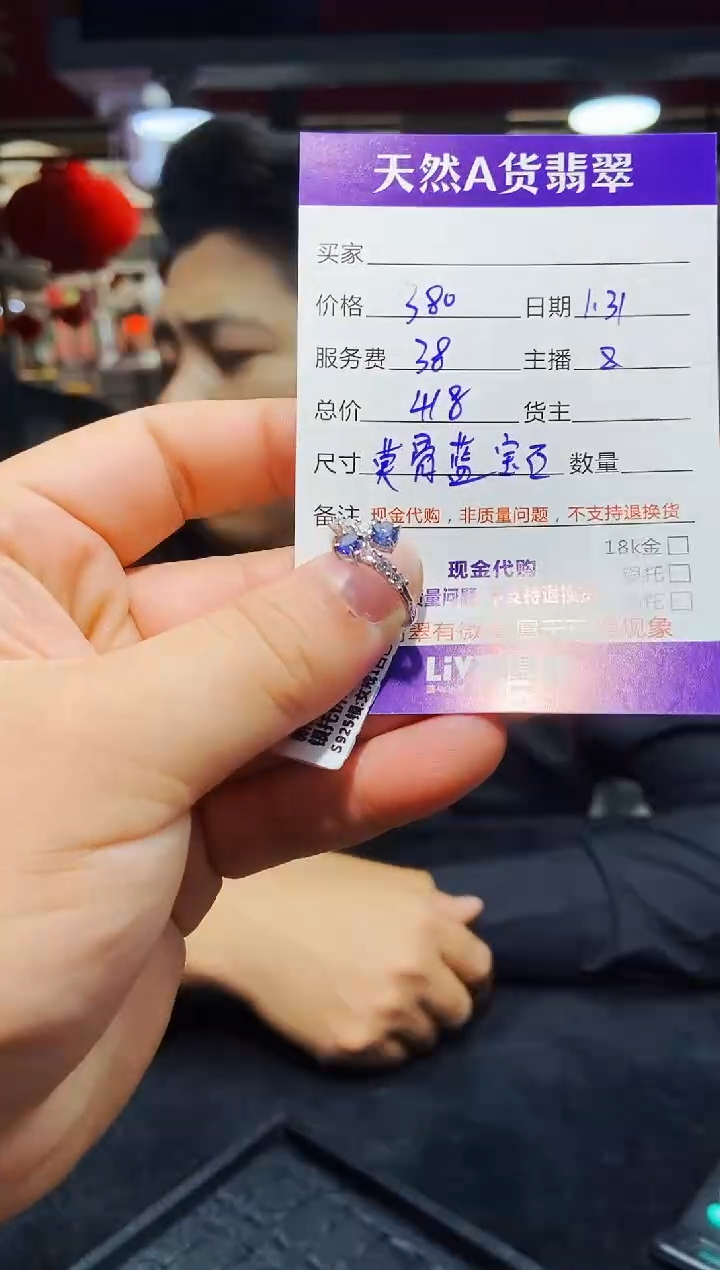 天然A货翡翠
买家
价格 380 日期 1.31
服务费 38 主播 8
总价 418 货主
尺寸 莫骨蓝宝石 数量
备注 现金代购，非质量问题，不支持退换货
18k金
现金代购
量问题 不支持退换货
翠有微 现象
LiY
S925银:女戒